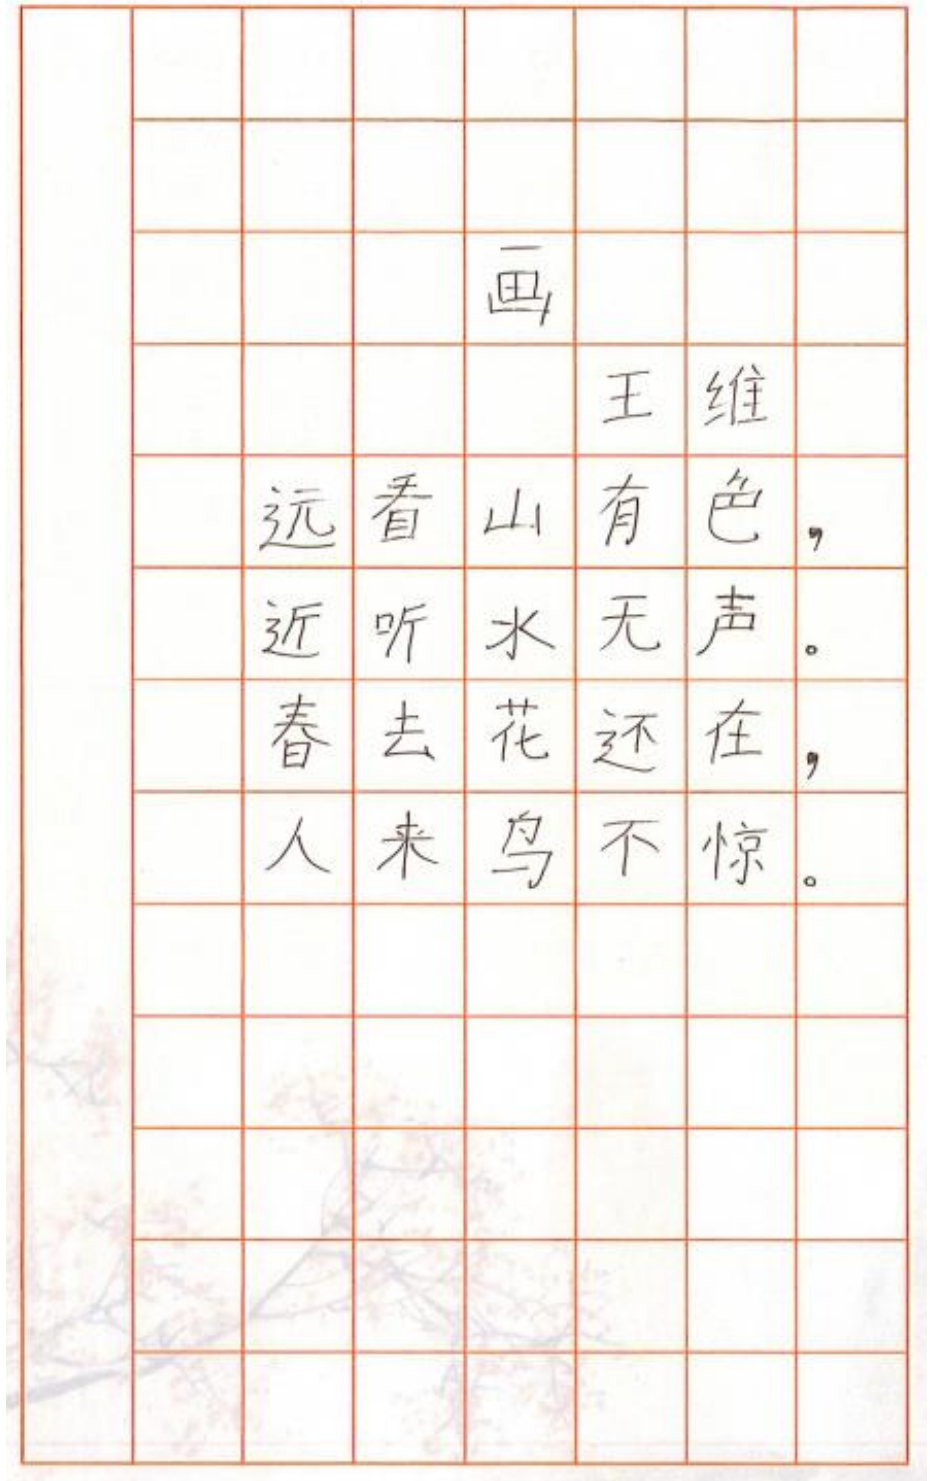 画
王维
远看山有色，
近听水无声。
春去花还在，
人来鸟不惊。